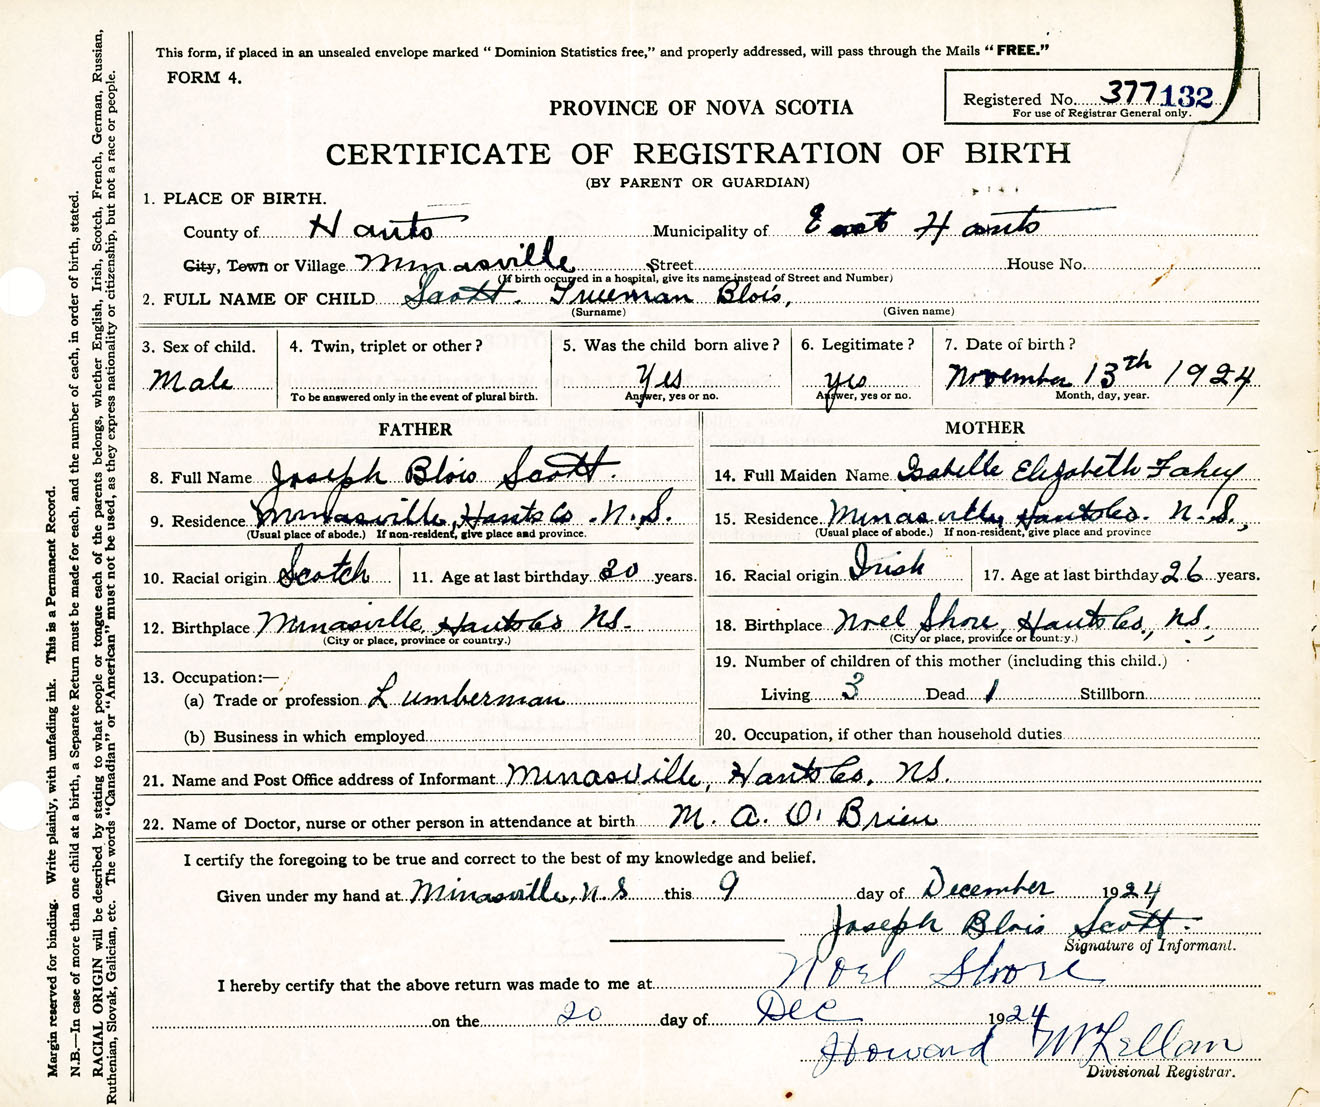 This form, if placed in an unsealed envelope marked " Dominion Statistics free," and properly addressed, will pass through the Mails " FREE."
FORM 4.
Registered No. 377132
For use of Registrar General only.
PROVINCE OF NOVA SCOTIA
CERTIFICATE OF REGISTRATION OF BIRTH
(BY PARENT OR GUARDIAN)
1. PLACE OF BIRTH.
County of Hants Municipality of East Hants
City, Town or Village Minasville Street House No.
(If birth occurred in a hospital, give its name instead of Street and Number)
2. FULL NAME OF CHILD Scott. Freeman Blois,
(Surname) (Given name)
3. Sex of child. 4. Twin, triplet or other? 5. Was the child born alive? 6. Legitimate? 7. Date of birth?
Male Yes yes November 13th 1924
To be answered only in the event of plural birth. Answer, yes or no. Answer, yes or no. Month, day, year.
FATHER MOTHER
8. Full Name Joseph Blois Scott. 14. Full Maiden Name Isabelle Elizabeth Fahey
9. Residence Minasville, Hants Co. N.S. 15. Residence Minasville, Hants Co. N.S.,
(Usual place of abode.) If non-resident, give place and province. (Usual place of abode.) If non-resident, give place and province
10. Racial origin Scotch 11. Age at last birthday 30 years. 16. Racial origin Irish 17. Age at last birthday 26 years.
12. Birthplace Minasville, Hants Co NS. 18. Birthplace Noel Shore, Hants Co., NS.,
(City or place, province or country.) (City or place, province or country.)
13. Occupation:— 19. Number of children of this mother (including this child.)
(a) Trade or profession Lumberman Living 3 Dead 1 Stillborn
(b) Business in which employed 20. Occupation, if other than household duties
21. Name and Post Office address of Informant Minasville, Hants Co, NS.
22. Name of Doctor, nurse or other person in attendance at birth M. A. O' Brien
I certify the foregoing to be true and correct to the best of my knowledge and belief.
Given under my hand at Minasville, N.S this 9 day of December 1924
Joseph Blois Scott.
Signature of Informant.
I hereby certify that the above return was made to me at Noel Shore
on the 20 day of Dec 1924
Howard McLellan
Divisional Registrar.
Margin reserved for binding. Write plainly, with unfading ink. This is a Permanent Record.
N.B.—In case of more than one child at a birth, a Separate Return must be made for each, and the number of each, in order of birth, stated.
RACIAL ORIGIN will be described by stating to what people or tongue each of the parents belongs, whether English, Irish, Scotch, French, German, Russian,
Ruthenian, Slovak, Galician, etc. The words "Canadian" or "American" must not be used, as they express nationality or citizenship, but not a race or people.